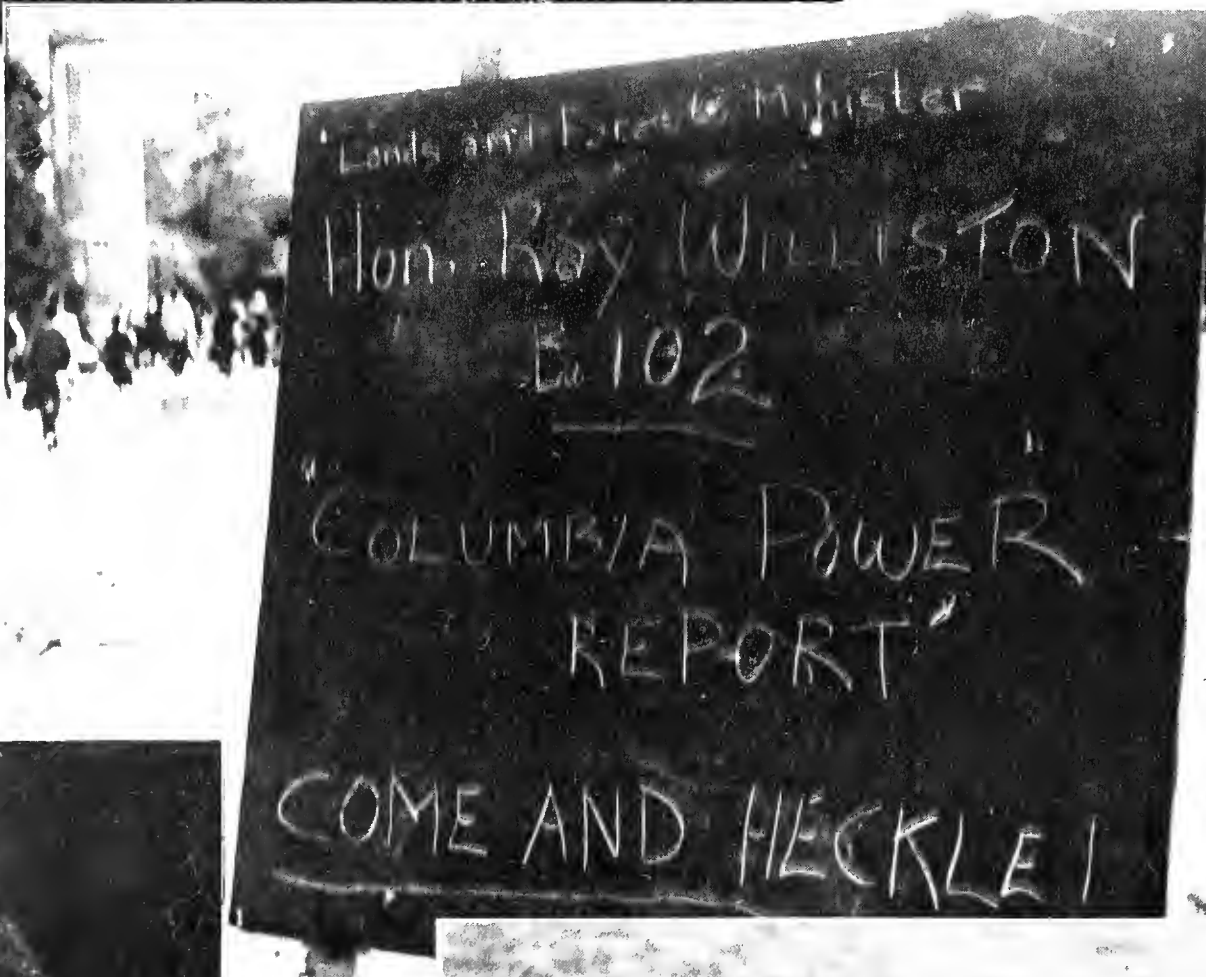 "Lands and Forests Minister
Hon. Ray WILLISTON
Bu 102
"COLUMBIA POWER
REPORT"
COME AND HECKLE!